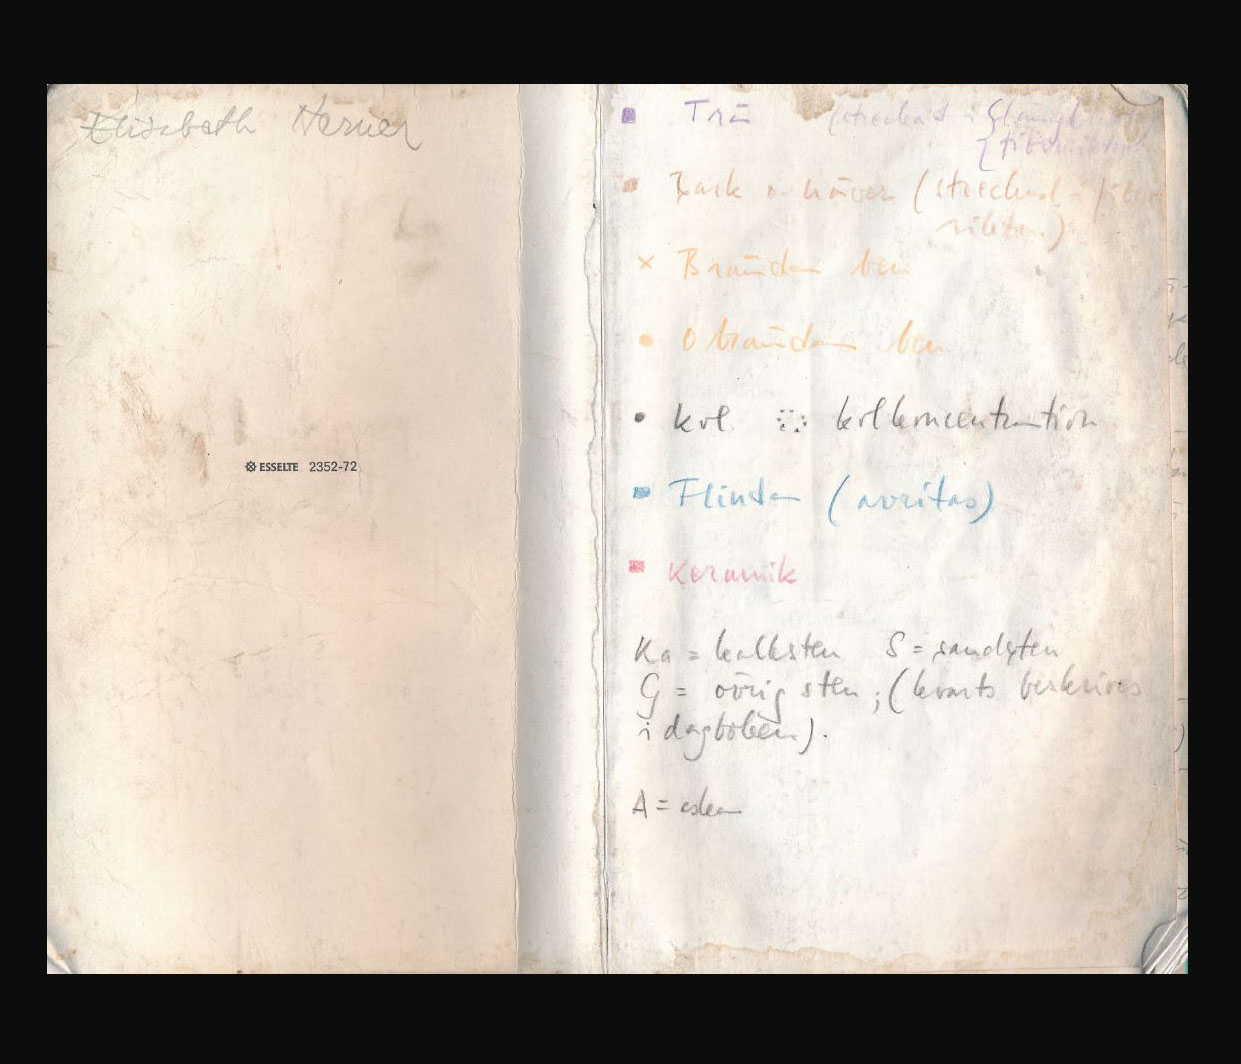 Elisabeth Herner
ESSELTE 2352-72
Trä (streckad i
Bark o näver (streckad i fiber
rikten.)
x Brända ben
Obrända ben
kol kolkoncentration
Flinta (avritas)
Keramik
Ka = kalksten S = sandsten
G = övrig sten; (kvarts beskrives
i dagboken).
A =